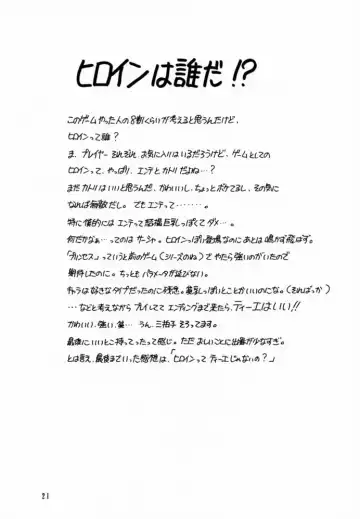 ヒロインは誰だ!?
このゲームやった人の8割くらいが考えると思うんだけど、
ヒロインって誰?
ま、プレイヤーそれぞれ、お気に入りはいるだろうけど、ゲームとしての
ヒロインって、やっぱり、エンテとカトリだよね…?
まだカトリはいいと思うんだ、かわいいし、ちょっとボケてるし、その気に
なれば無敵だし。でもエンテって……。
特に情的にはエンテって結構巨乳っぽくてダメ…。
何だかなぁ…ってのはサーシャ。ヒロインっぽい登場なのにあとは鳴かず飛ばず。
「プリンセス」っていうと前のゲーム(シリーズのね)でやたら強いのがいたので
期待したのに。ちっともパラメータが延びない。
キャラは好きなタイプだったのに残念。貧乳っぽいとこがいいのにな。(そればっか)
…などと考えながらプレイしててエンディングまで来たら、ティーエはいい!!
かわいい、強い、貧…うん、三拍子そろってます。
最後にいいとこ持ってったって感じ。ただおしいことに出番が少なすぎ。
とは言え、最後までいった感想は、「ヒロインってティーエじゃないの?」
21